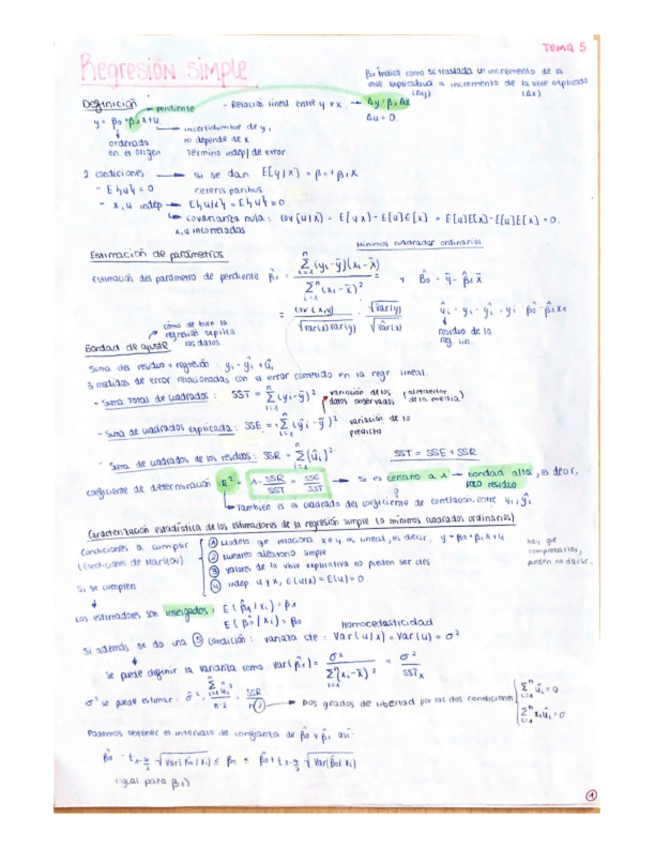 TEMA 5
Regresión simple
β₁ indica como se traslada un incremento de la
vble explicativa a incremento de la vble explicada
(Δy) (Δx)
Definición
pendiente - Relación lineal entre y y x → Δy = β₁ Δx
y = β₀ + β₁x + u Δu = 0
incertidumbre de y,
ordenada no depende de x
en el origen término indep/ de error
2 condiciones → si se dan E[y/x] = β₀ + β₁x
- E{u} = 0 ceteris paribus
- x, u indep → E{u/x} = E{u} = 0
covarianza nula: cov[u,x] = E[ux] - E[u]E[x] = E[u]E[x] - E[u]E[x] = 0.
x, u incorreladas
Mínimos cuadrados ordinarios
Estimación de parámetros
Estimación del parámetro de pendiente β̂₁ = Σⁿᵢ₌₁ (yᵢ - ȳ)(xᵢ - x̄) / Σⁿᵢ₌₁ (xᵢ - x̄)² y β̂₀ = ȳ - β̂₁ x̄
= cov(x,y) / √var(x)var(y) · √var(y) / √var(x) ûᵢ = yᵢ - ŷᵢ = yᵢ - β̂₀ - β̂₁xᵢ
residuo de la
reg lin.
cómo de bien la
regresión explica
los datos
Bondad de ajuste
Suma del residuo + regresión: yᵢ = ŷᵢ + ûᵢ
3 medidas de error relacionadas con el error cometido en la regr lineal.
- Suma Total de cuadrados: SST = Σⁿᵢ₌₁ (yᵢ - ȳ)² variación de los datos observados (alrededor de la media)
- Suma de cuadrados explicada: SSE = Σⁿᵢ₌₁ (ŷᵢ - ȳ)² variación de lo predicho
- Suma de cuadrados de los residuos: SSR = Σⁿᵢ₌₁ (ûᵢ)² SST = SSE + SSR
coeficiente de determinación R² = 1 - SSR/SST = SSE/SST → Si es cercano a 1 → bondad alta, es decir,
poco residuo
También es el cuadrado del coeficiente de correlación entre yᵢ, ŷᵢ
Caracterización estadística de los estimadores de la regresión simple (o mínimos cuadrados ordinarios)
Condiciones a cumplir ① Modelo que relaciona x e y es lineal, es decir, y = β₀ + β₁x + u
(Condiciones de Markov) ② Muestreo aleatorio simple
③ valores de la vble explicativa no pueden ser ctes
④ indep u y x, E(u/x) = E(u) = 0
hay que
comprobarlas,
pueden no darse.
Si se cumplen
Los estimadores son insesgados: E(β̂₁/xᵢ) = β₁
E(β̂₀/xᵢ) = β₀
homocedasticidad
Si además se da una ⑤ condición: varianza cte: Var(u/x) = Var(u) = σ²
se puede definir la varianza como var(β̂₁) = σ² / Σⁿᵢ₌₁ (xᵢ - x̄)² = σ² / SSTₓ
σ² se puede estimar: σ̂² = Σⁿᵢ₌₁ ûᵢ² / n-2 = SSR / n-2 → Dos grados de libertad por las dos condiciones { Σⁿᵢ₌₁ ûᵢ = 0
Σⁿᵢ₌₁ xᵢûᵢ = 0
Podemos obtener el intervalo de confianza de β̂₀ y β̂₁ así:
β̂₀ - t₁₋α/₂ √Var(β̂₀/xᵢ) ≤ β₀ ≤ β̂₀ + t₁₋α/₂ √Var(β̂₀/xᵢ)
(igual para β₁)
1